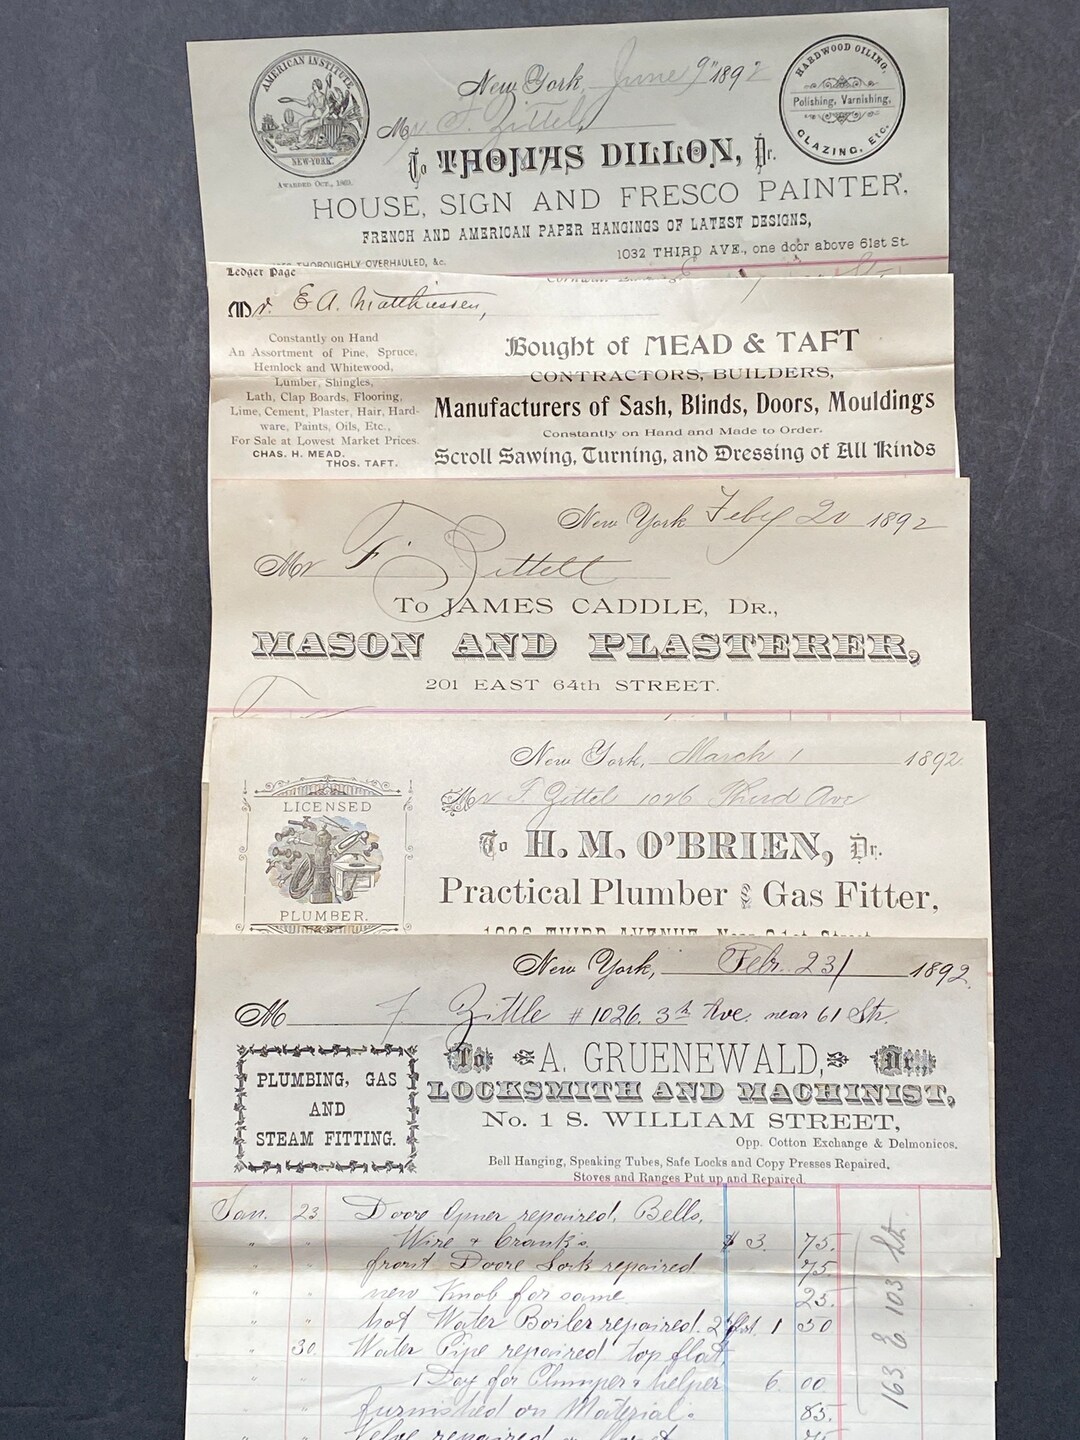 AMERICAN INSTITUTE
NEW-YORK.
AWARDED OCT., 1869.
New York, June 9th 1892
Mr F. Zittel,
To THOMAS DILLON, Dr.
HARDWOOD OILING,
Polishing, Varnishing,
GLAZING, Etc.
HOUSE, SIGN AND FRESCO PAINTER,
FRENCH AND AMERICAN PAPER HANGINGS OF LATEST DESIGNS,
1032 THIRD AVE., one door above 61st St.
THOROUGHLY OVERHAULED, &c.
Ledger Page
Mr. E A. Matthiessen,
Constantly on Hand
An Assortment of Pine, Spruce,
Hemlock and Whitewood,
Lumber, Shingles,
Lath, Clap Boards, Flooring,
Lime, Cement, Plaster, Hair, Hard-
ware, Paints, Oils, Etc.,
For Sale at Lowest Market Prices.
CHAS. H. MEAD.
THOS. TAFT.
Bought of MEAD & TAFT
CONTRACTORS, BUILDERS,
Manufacturers of Sash, Blinds, Doors, Mouldings
Constantly on Hand and Made to Order.
Scroll Sawing, Turning, and Dressing of All Kinds
New York Feby 20 1892
Mr F. Zittell
To JAMES CADDLE, Dr.,
MASON AND PLASTERER,
201 EAST 64th STREET.
New York, March 1 1892
LICENSED
PLUMBER.
Mr F. Zittel 1026 Third Ave
To H. M. O'BRIEN, Dr.
Practical Plumber & Gas Fitter,
1026 THIRD AVENUE, Near 61st Street
New York, Febr. 23/ 1892
M F. Zittle # 1026. 3th Ave. near 61 Str.
PLUMBING, GAS
AND
STEAM FITTING.
To A. GRUENEWALD, Dr.
LOCKSMITH AND MACHINIST,
No. 1 S. WILLIAM STREET,
Opp. Cotton Exchange & Delmonicos.
Bell Hanging, Speaking Tubes, Safe Locks and Copy Presses Repaired.
Stoves and Ranges Put up and Repaired.
Jan. 23 Doore Opner repaired, Bells,
" " Wire & Cranks. $ 3. 75.
" " front Doore Lock repaired 75.
" " new Knob for same 25.
" " hot Water Boiler repaired. 1 50
" 30. Water Pipe repaired top flat
" " 1 Day for Plumper & helper 6. 00
" " furnished on Material. 85.
repaired 75
163 E 103 St.